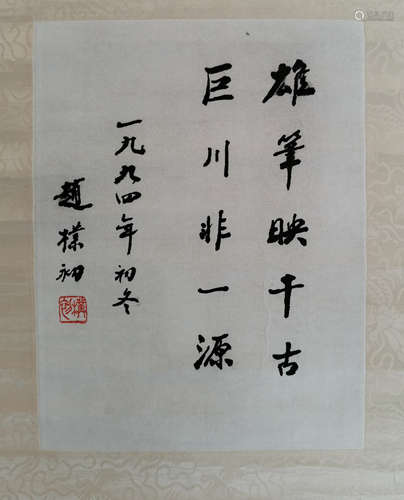 雄筆映千古
巨川非一源
一九九四年初冬
趙樸初
樸初